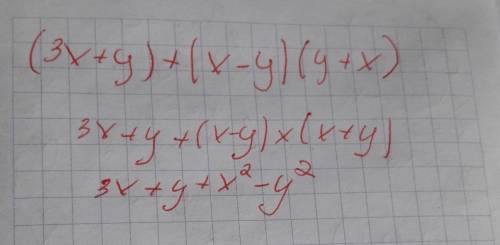 (3x+y)+(x-y)(y+x)
3x+y+(x-y)×(x+y)
3x+y+x²-y²